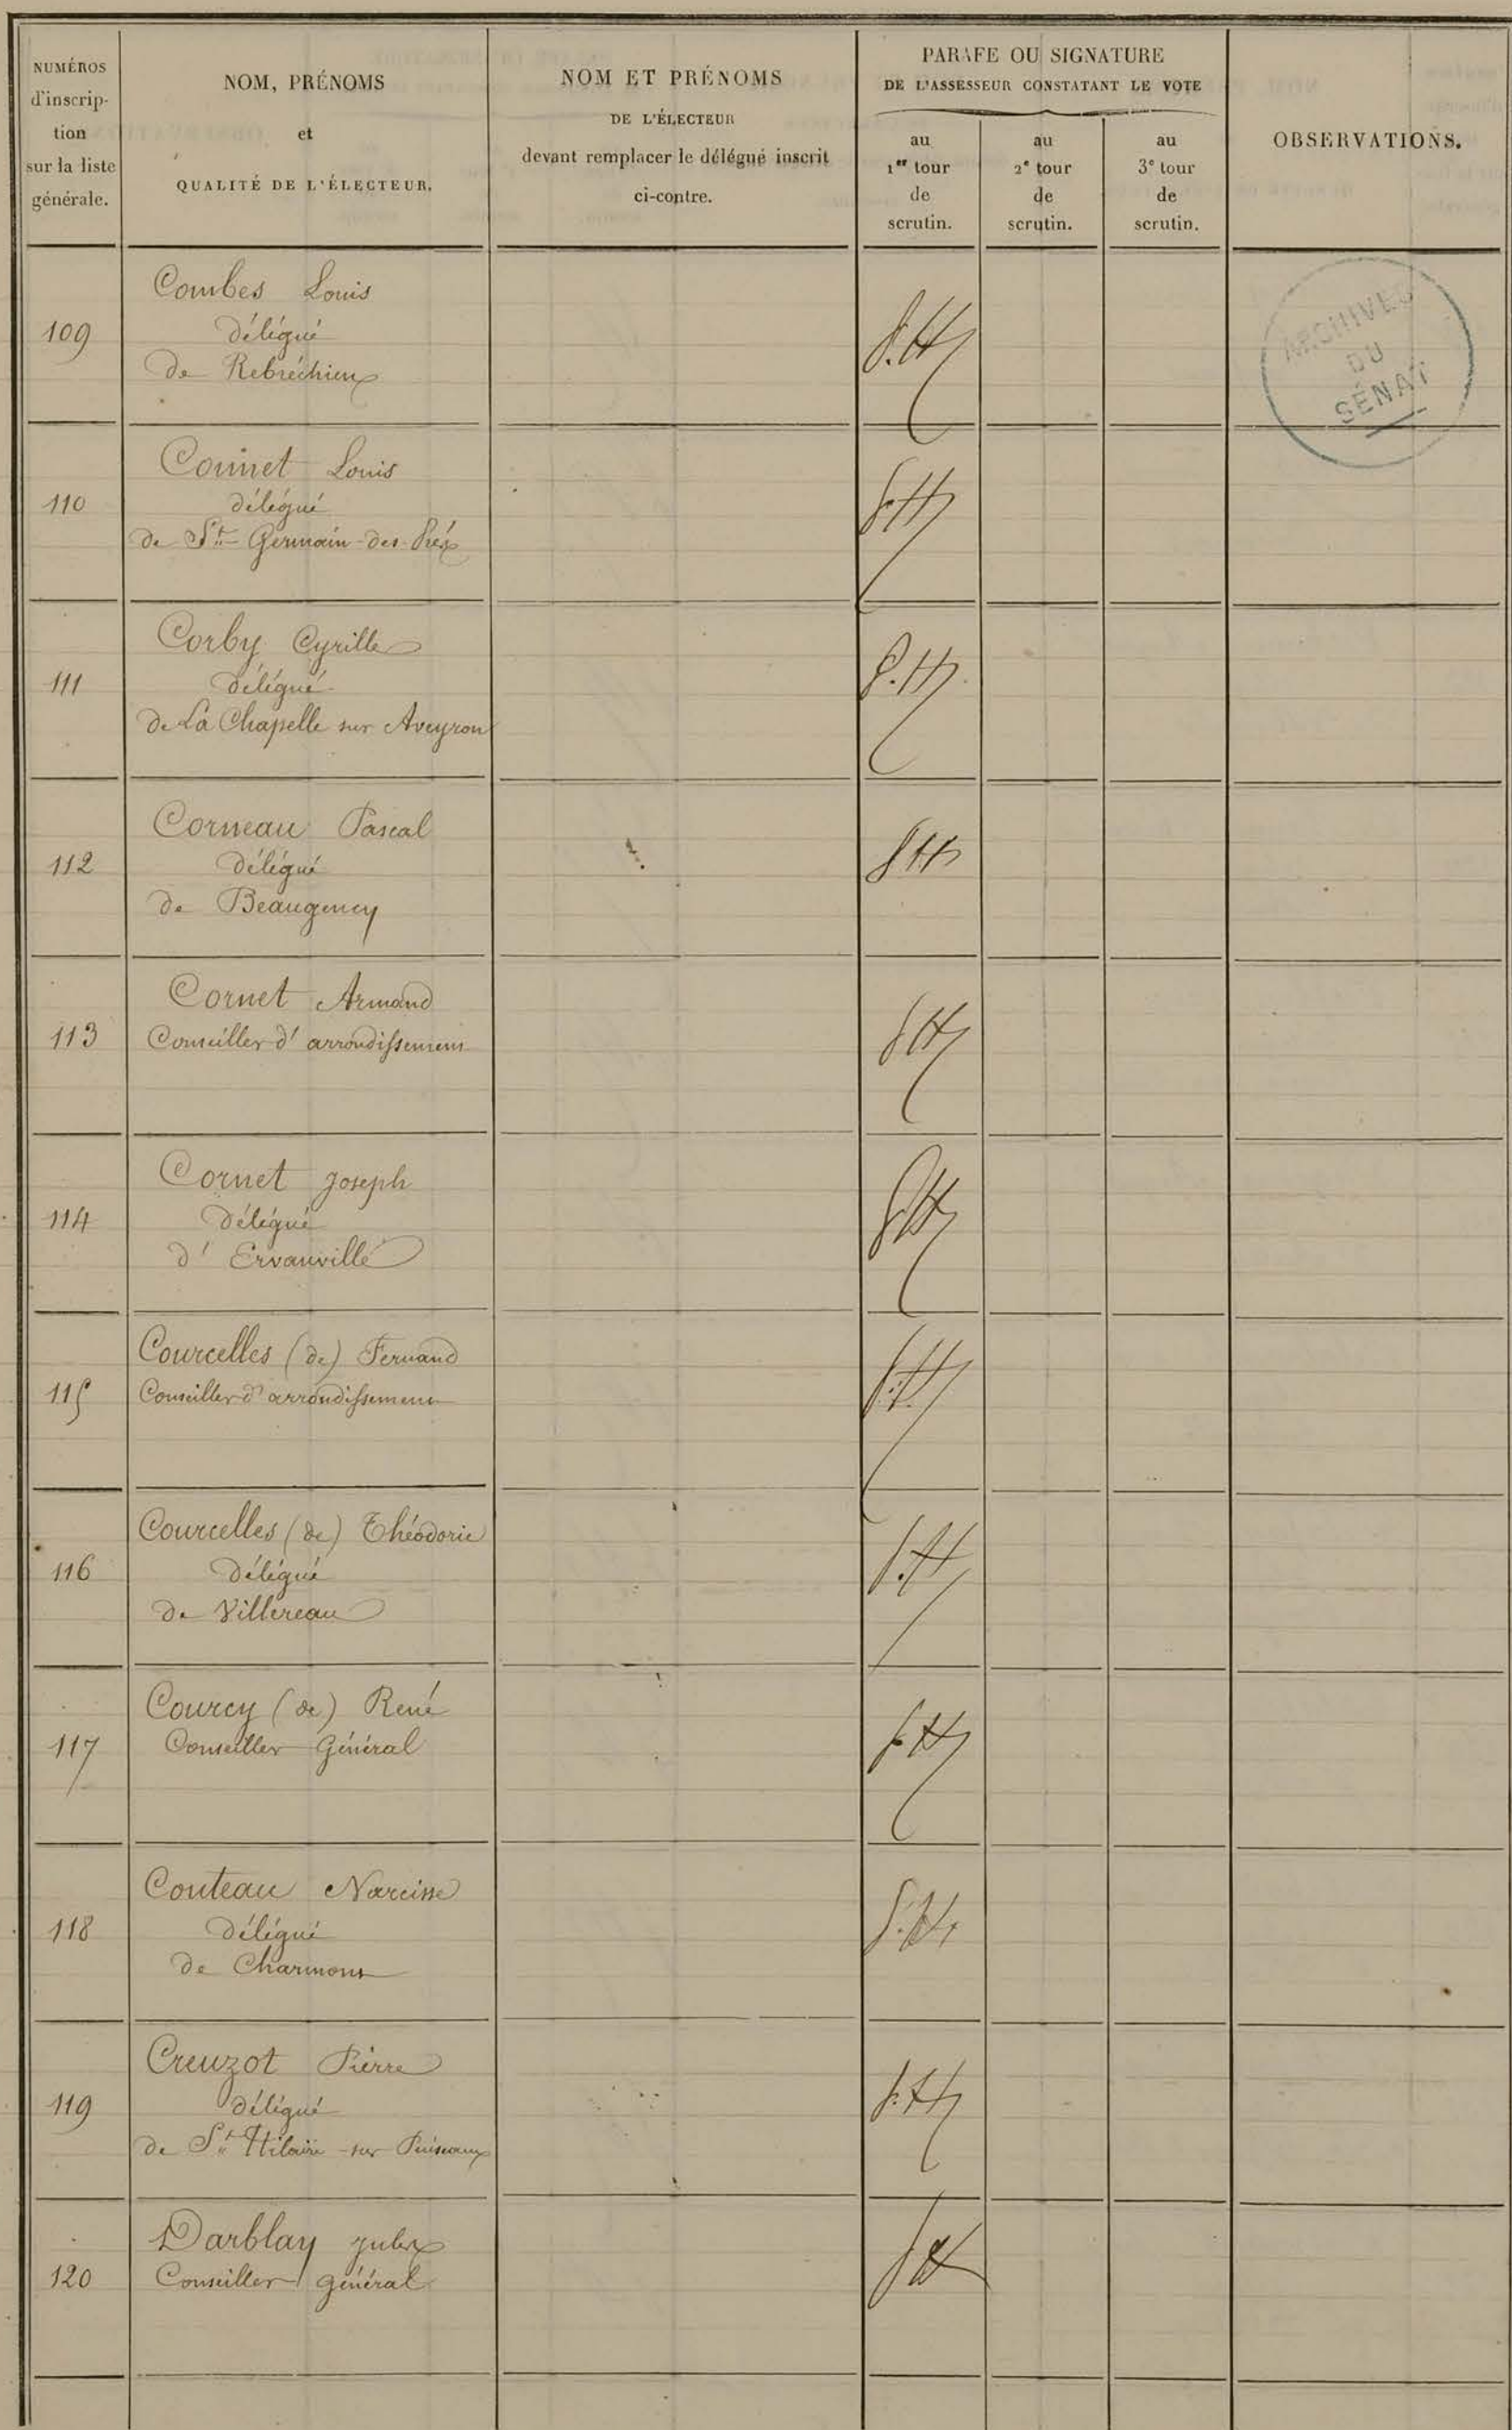 NUMÉROS
d'inscrip-
tion
sur la liste
générale.
NOM, PRÉNOMS
et
QUALITÉ DE L'ÉLECTEUR.
NOM ET PRÉNOMS
DE L'ÉLECTEUR
devant remplacer le délégué inscrit
ci-contre.
PARAFE OU SIGNATURE
DE L'ASSESSEUR CONSTATANT LE VOTE
au
1er tour
de
scrutin.
au
2e tour
de
scrutin.
au
3e tour
de
scrutin.
OBSERVATIONS.
ARCHIVES
DU
SÉNAT
109
Combes Louis
délégué
de Rebréchien
110
Louis
délégué
de St Germain-des-Prés
111
Corby Cyrille
délégué
de La Chapelle sur Aveyron
112
Corneau Pascal
délégué
de Beaugency
113
Cornet Armand
Conseiller d'arrondissement
114
Cornet Joseph
délégué
d'Ervauville
115
Courcelles (de) Fernand
Conseiller d'arrondissement
116
Courcelles (de) Théodoric
délégué
de Villereau
117
Courcy (de) René
Conseiller Général
118
Couteau Narcisse
délégué
de Charmont
119
Creuzot Pierre
délégué
de St Hilaire-sur Puiseaux
120
Darblay Jules
Conseiller général